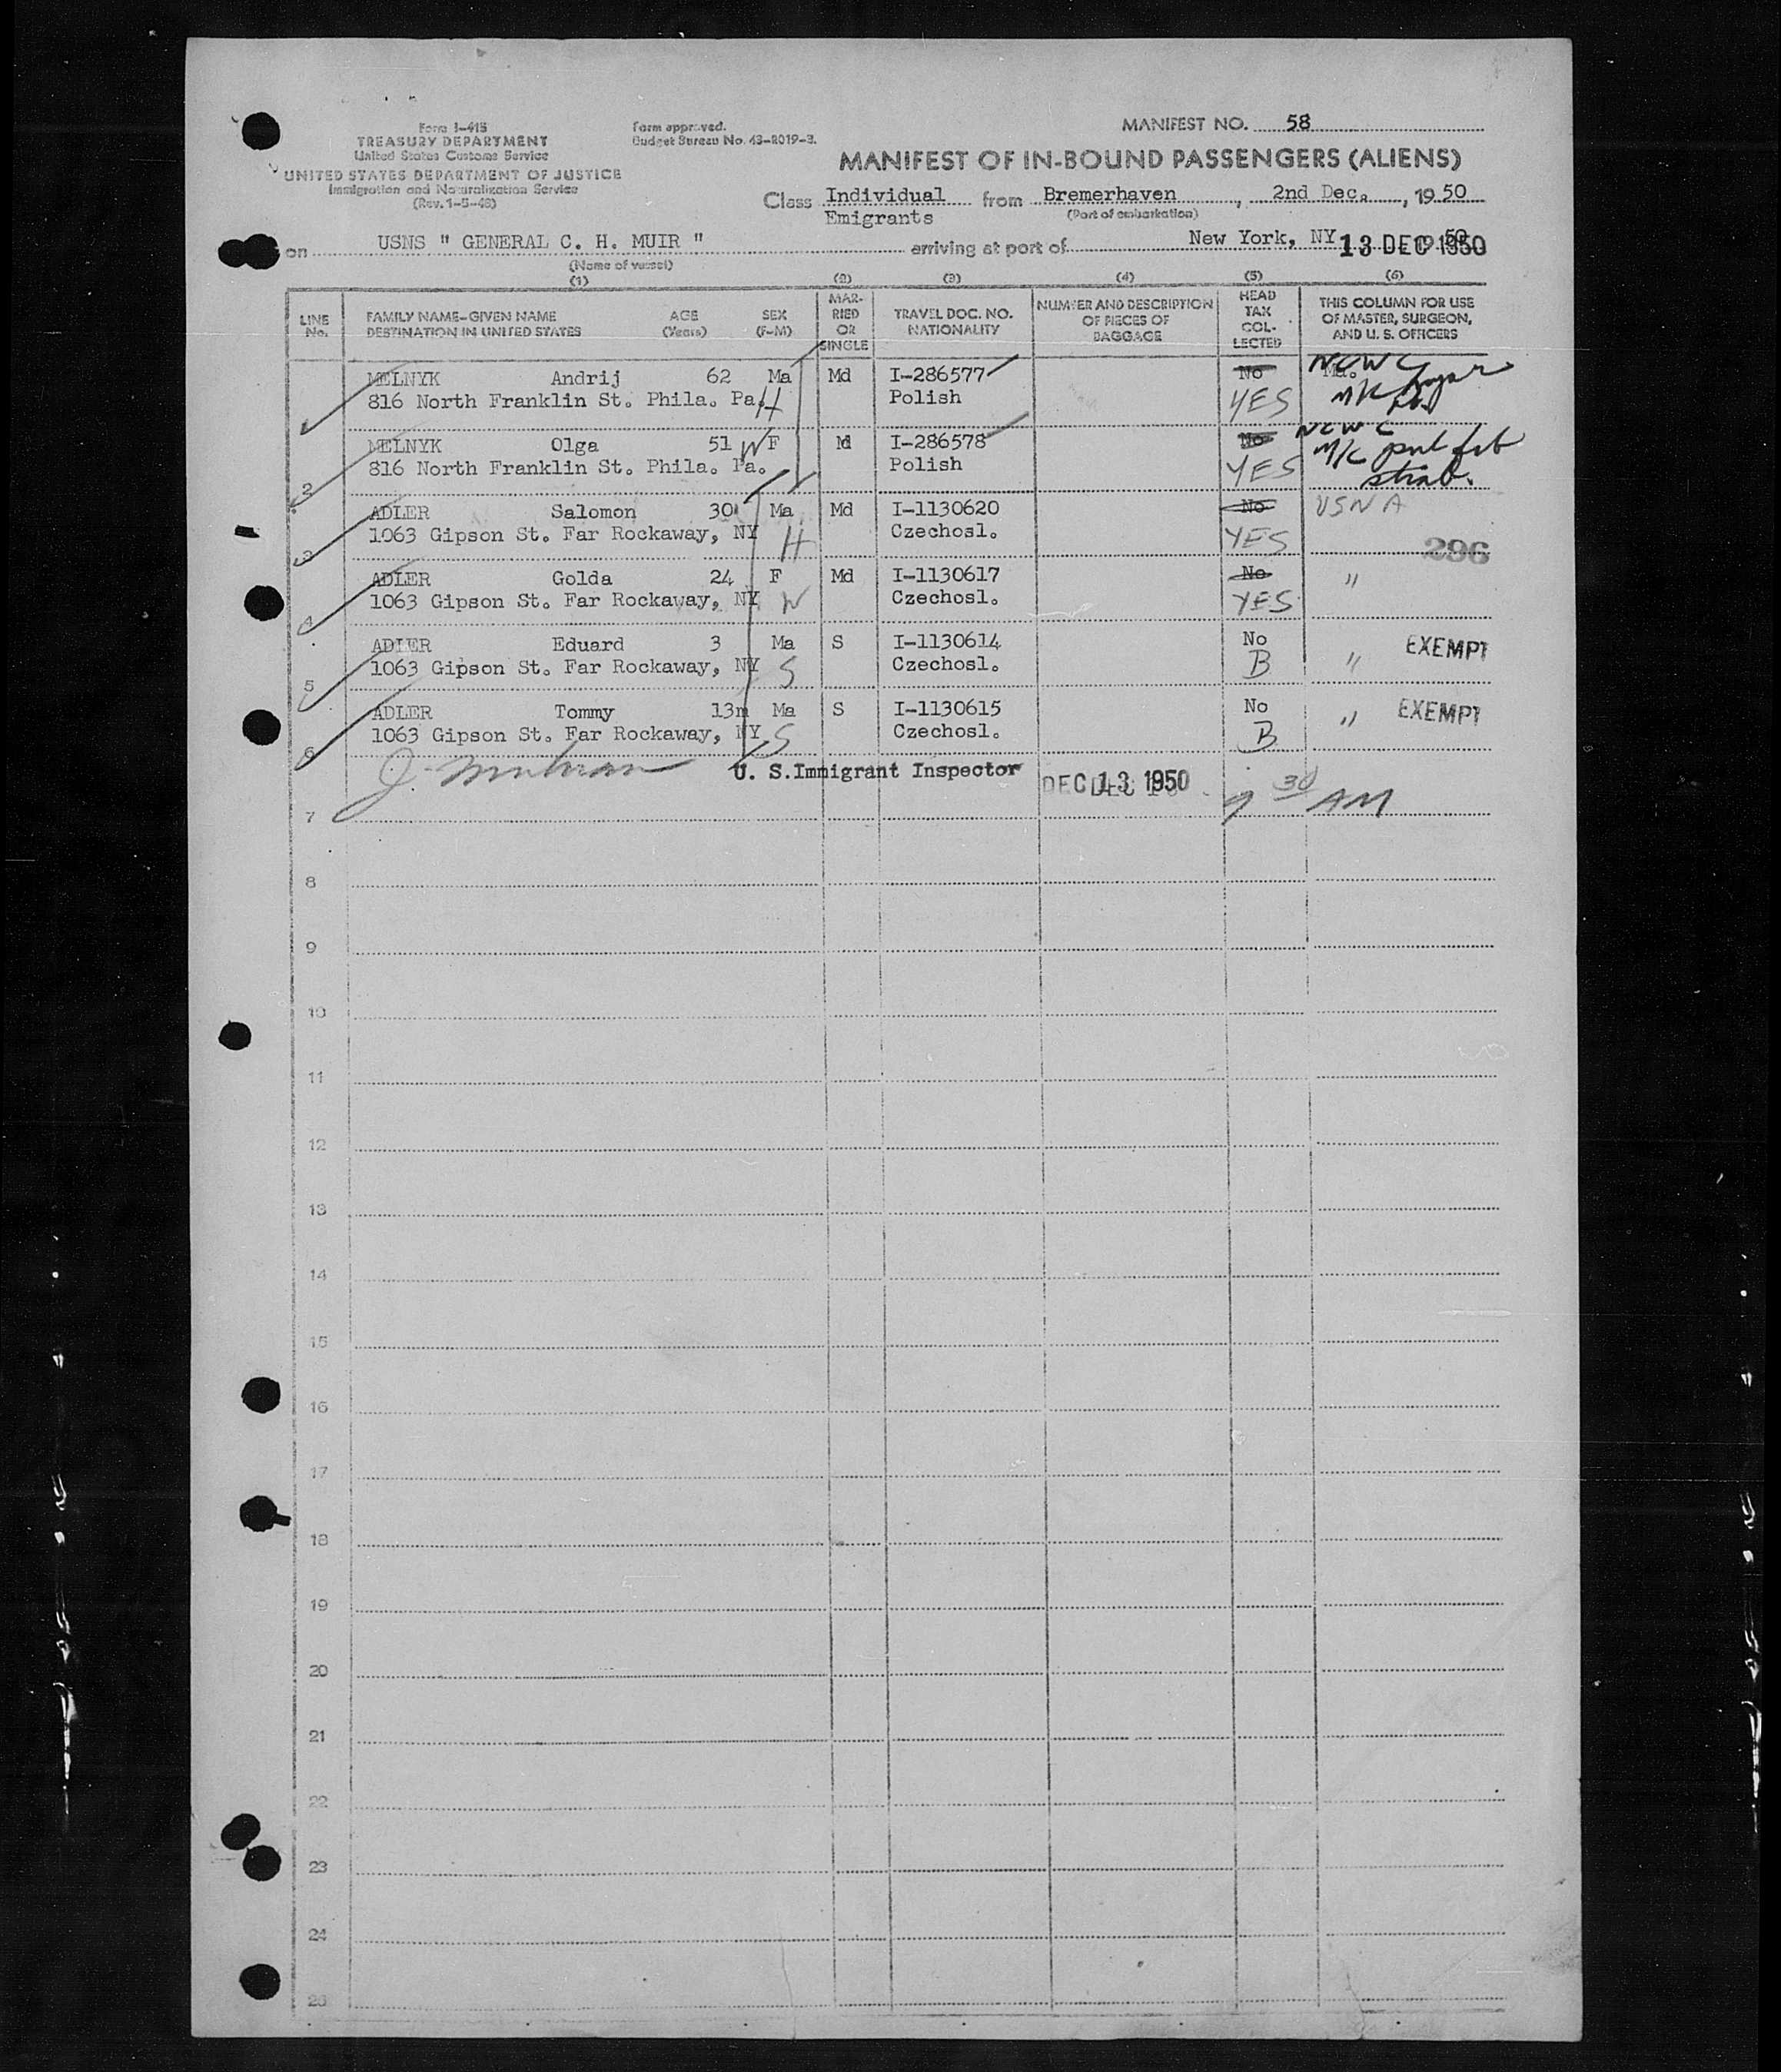 Form I-415
TREASURY DEPARTMENT
United States Customs Service
UNITED STATES DEPARTMENT OF JUSTICE
Immigration and Naturalization Service
(Rev. 1-5-48)
Form approved.
Budget Bureau No. 43-R019-3.
MANIFEST NO. 58
MANIFEST OF IN-BOUND PASSENGERS (ALIENS)
Class Individual Emigrants from Bremerhaven, 2nd Dec., 1950
(Port of embarkation)
on USNS " GENERAL C. H. MUIR " arriving at port of New York, NY 13 DEC 1950
(Name of vessel)
(1) (2) (3) (4) (5) (6)
LINE No. FAMILY NAME-GIVEN NAME DESTINATION IN UNITED STATES AGE (Years) SEX (F-M) MAR-RIED OR SINGLE TRAVEL DOC. NO. NATIONALITY NUMBER AND DESCRIPTION OF PIECES OF BAGGAGE HEAD TAX COL-LECTED THIS COLUMN FOR USE OF MASTER, SURGEON, AND U. S. OFFICERS
MELNYK Andrij 62 Ma Md I-286577 No NCWC
1 816 North Franklin St. Phila. Pa. H Polish YES M/C
MELNYK Olga 51 W F Md I-286578 No NCWC
2 816 North Franklin St. Phila. Pa. Polish YES M/C
strab.
ADLER Salomon 30 Ma Md I-1130620 No USNA
3 1063 Gipson St. Far Rockaway, NY H Czechosl. YES 296
ADLER Golda 24 F Md I-1130617 No "
4 1063 Gipson St. Far Rockaway, NY W Czechosl. YES
ADLER Eduard 3 Ma S I-1130614 No EXEMPT
5 1063 Gipson St. Far Rockaway, NY S Czechosl. B "
ADLER Tommy 13m Ma S I-1130615 No " EXEMPT
6 1063 Gipson St. Far Rockaway, NY S Czechosl. B
U. S. Immigrant Inspector DEC 13 1950 9 30 AM
7
8
9
10
11
12
13
14
15
16
17
18
19
20
21
22
23
24
25